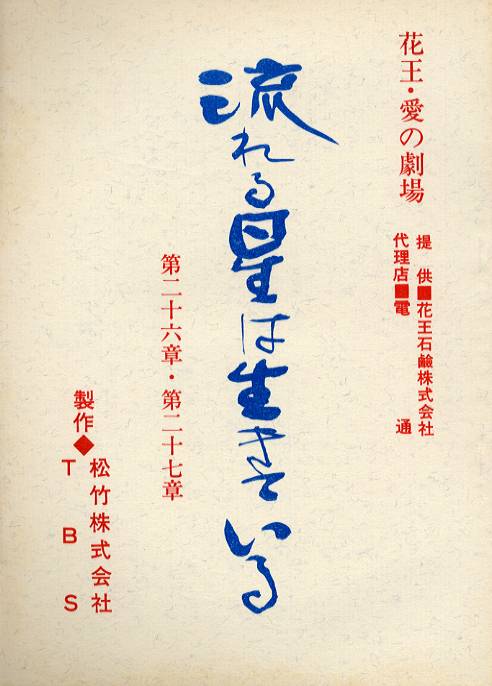 花王・愛の劇場
提供■花王石鹸株式会社
代理店■電通
流れる星は生きている
第二十六章・第二十七章
製作◆松竹株式会社
TBS